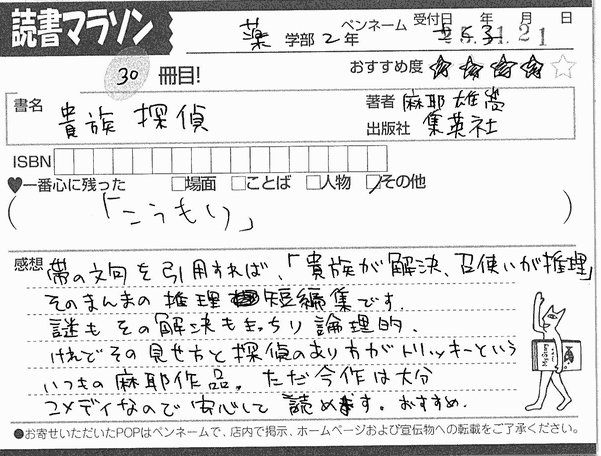 読書マラソン
薬 学部 2年 ペンネーム 受付日 年 月 日
30 冊目! おすすめ度 ★★★★☆
書名 貴族探偵 著者 麻耶雄嵩
出版社 集英社
ISBN
♥一番心に残った □場面 □ことば □人物 ☑その他
(「こうもり」)
感想 帯の文句を引用すれば、「貴族が解決、召使いが推理」
そのまんまの推理短編集です。
謎もその解決もきっちり論理的.
けれでその見せ方と探偵のあり方がトリッキーという
いつもの麻耶作品。ただ今作は大分
コメディなので安心して読めます。おすすめ.
●お寄せいただいたPOPはペンネームで、店内で掲示、ホームページおよび宣伝物への転載をご了承ください。